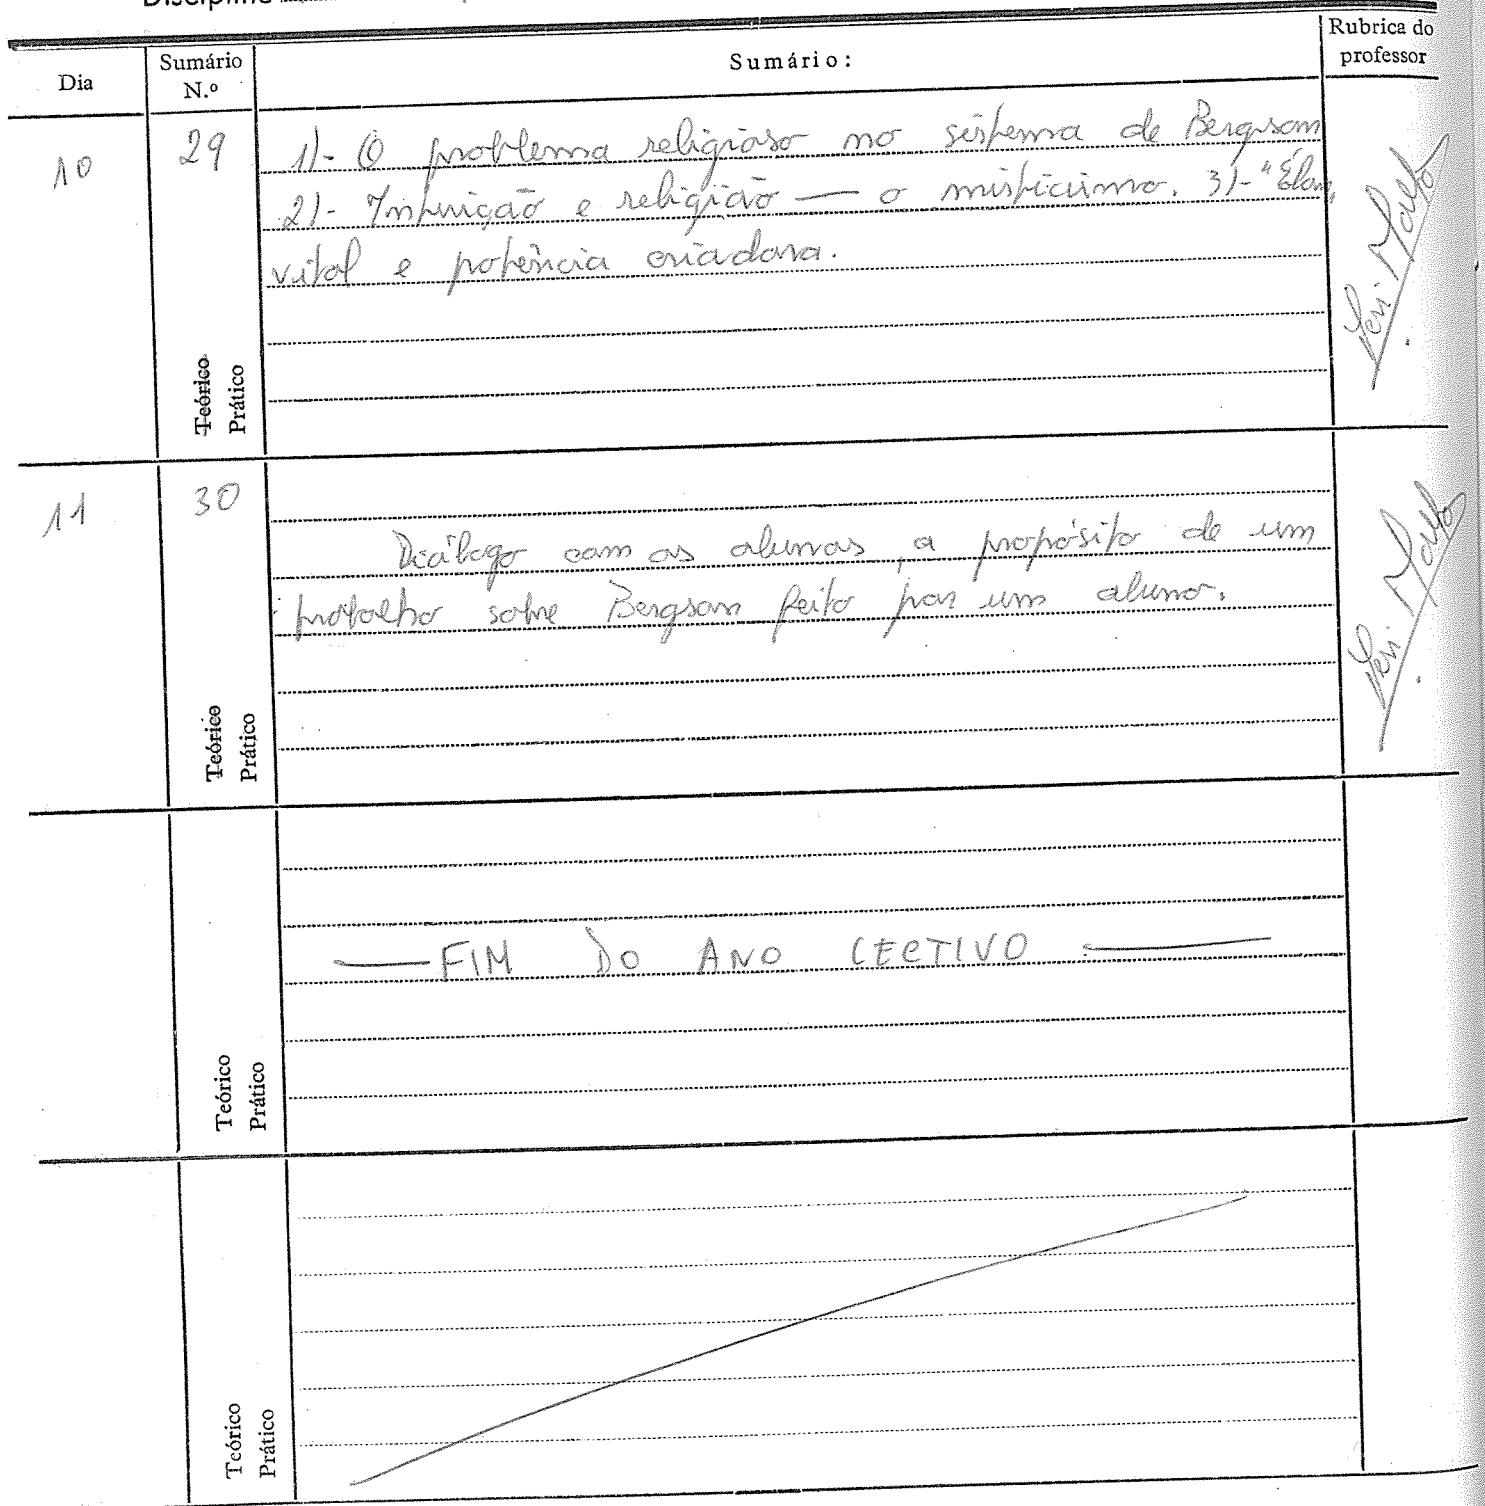 Disciplin
Dia
Sumário N.º
Sumário:
Rubrica do professor
10
29
1)- O problema religioso no sistema de Bergson
2)- Intuição e religião — o misticismo. 3)- "Élan
vital e potência criadora.
Teórico
Prático
11
30
Diálogo com os alunos, a propósito de um
trabalho sobre Bergson feito por um aluno.
Teórico
Prático
— FIM DO ANO LECTIVO —
Teórico
Prático
Teórico
Prático